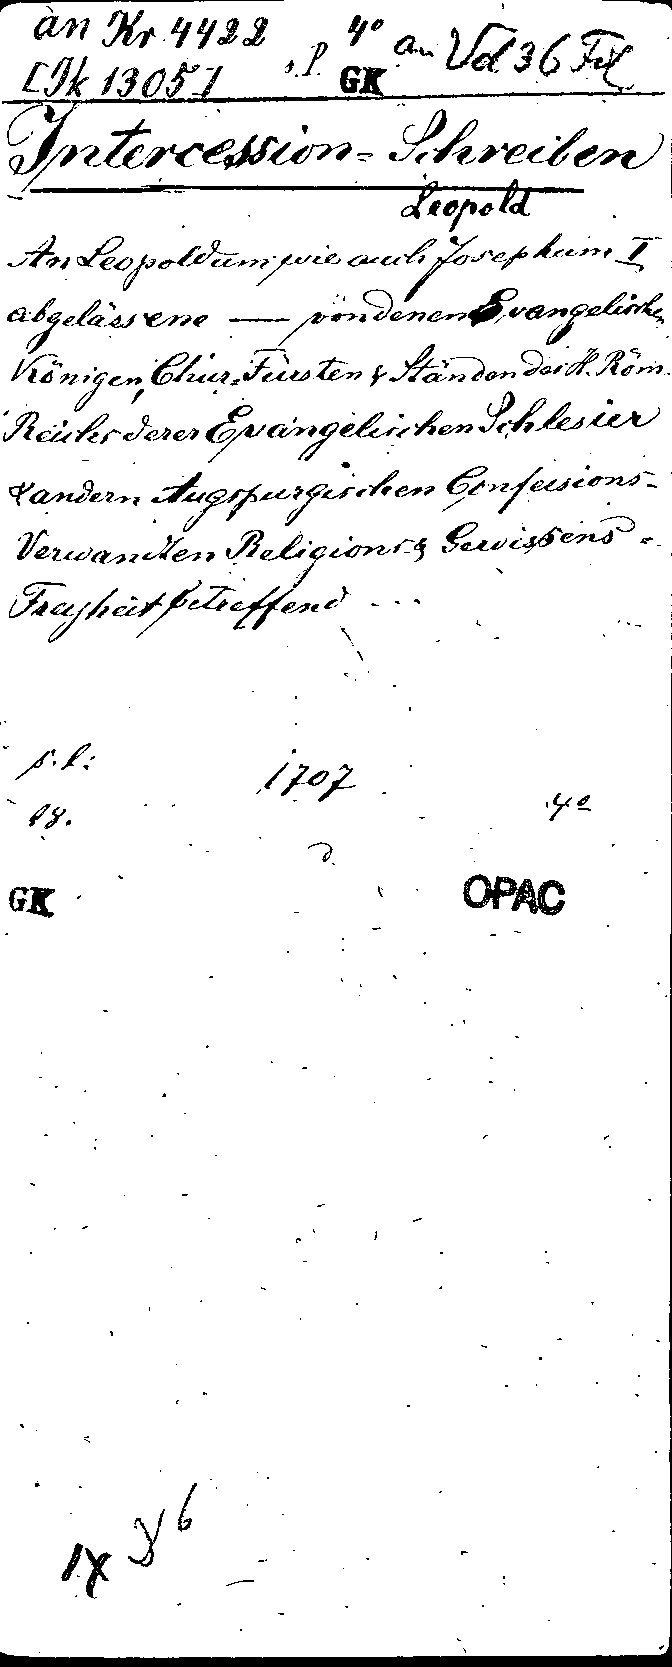 an Kr 4422 4° an Vd 36
[Jk 13051 GK
Intercession-Schreiben
Leopold
An Leopoldum wie auch Josephum I
abgelassene — von denen Evangelischen
Königen, Chur-Fürsten & Ständen des H. Röm.
Reichs derer Evangelischen Schlesier
& andern Augspurgischen Confessions-
Verwandten Religions- & Gewissens-
Freyheit betreffend ...
s. l. 1707
18. 4°
GK OPAC